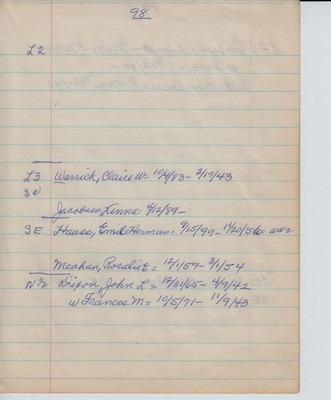 98
L2
L3 Warrick, Claire W= 10/4/83- 2/19/43
3
Jacobsen, Linna= 4/12/89-
3E Haase, Emil Herman= 9/15/99- 11/20/56= WW2
Meehan, Rosalie E= 12/1/59- 3/1/54
N½ Dixon, John L= 12/31/65- 4/9/42
w Frances M= 10/5/71- 11/9/43